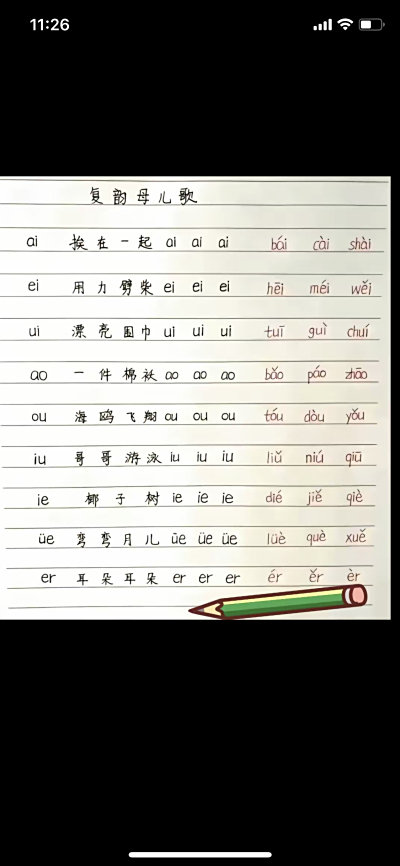 11:26
复韵母儿歌
ai 挨在一起 ai ai ai bái cài shài
ei 用力劈柴 ei ei ei hēi méi wěi
ui 漂亮围巾 ui ui ui tuī guì chuí
ao 一件棉袄 ao ao ao bǎo páo zhāo
ou 海鸥飞翔 ou ou ou tóu dòu yǒu
iu 哥哥游泳 iu iu iu liǔ niú qiū
ie 椰子树 ie ie ie dié jiě qiè
üe 弯弯月儿 üe üe üe lüè què xuě
er 耳朵耳朵 er er er ér ěr èr